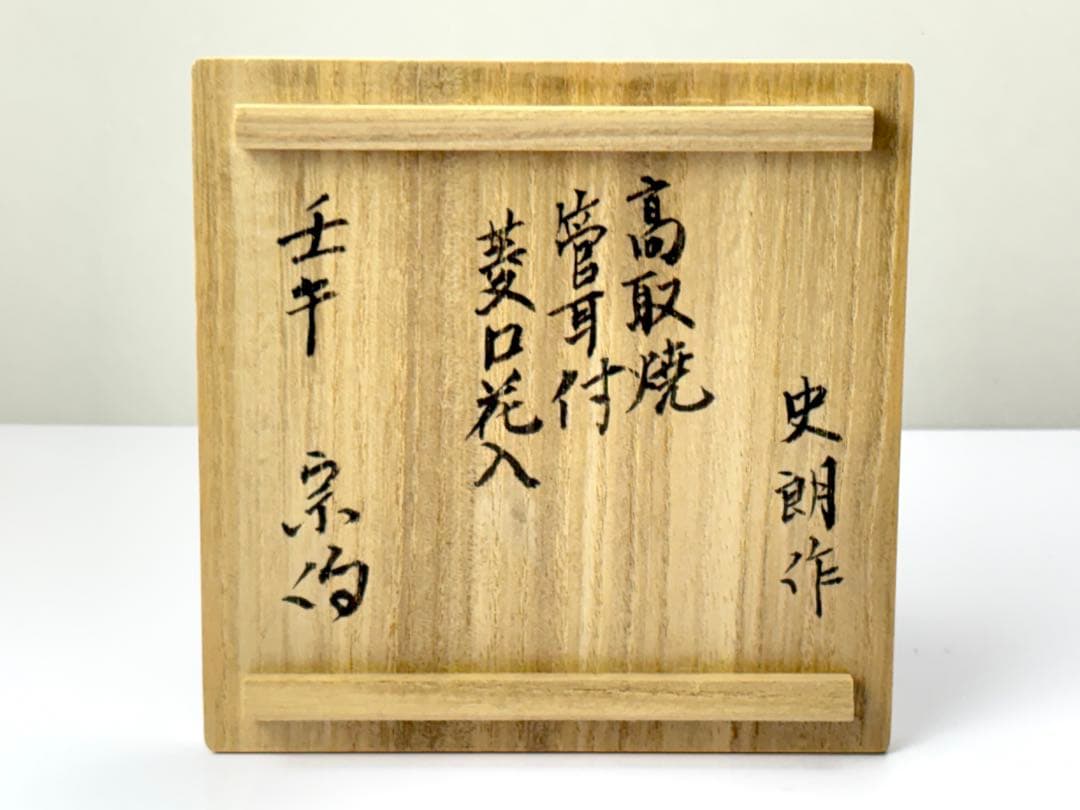 史朗作
高取燒
管耳付
菱口花入
壬午 宗